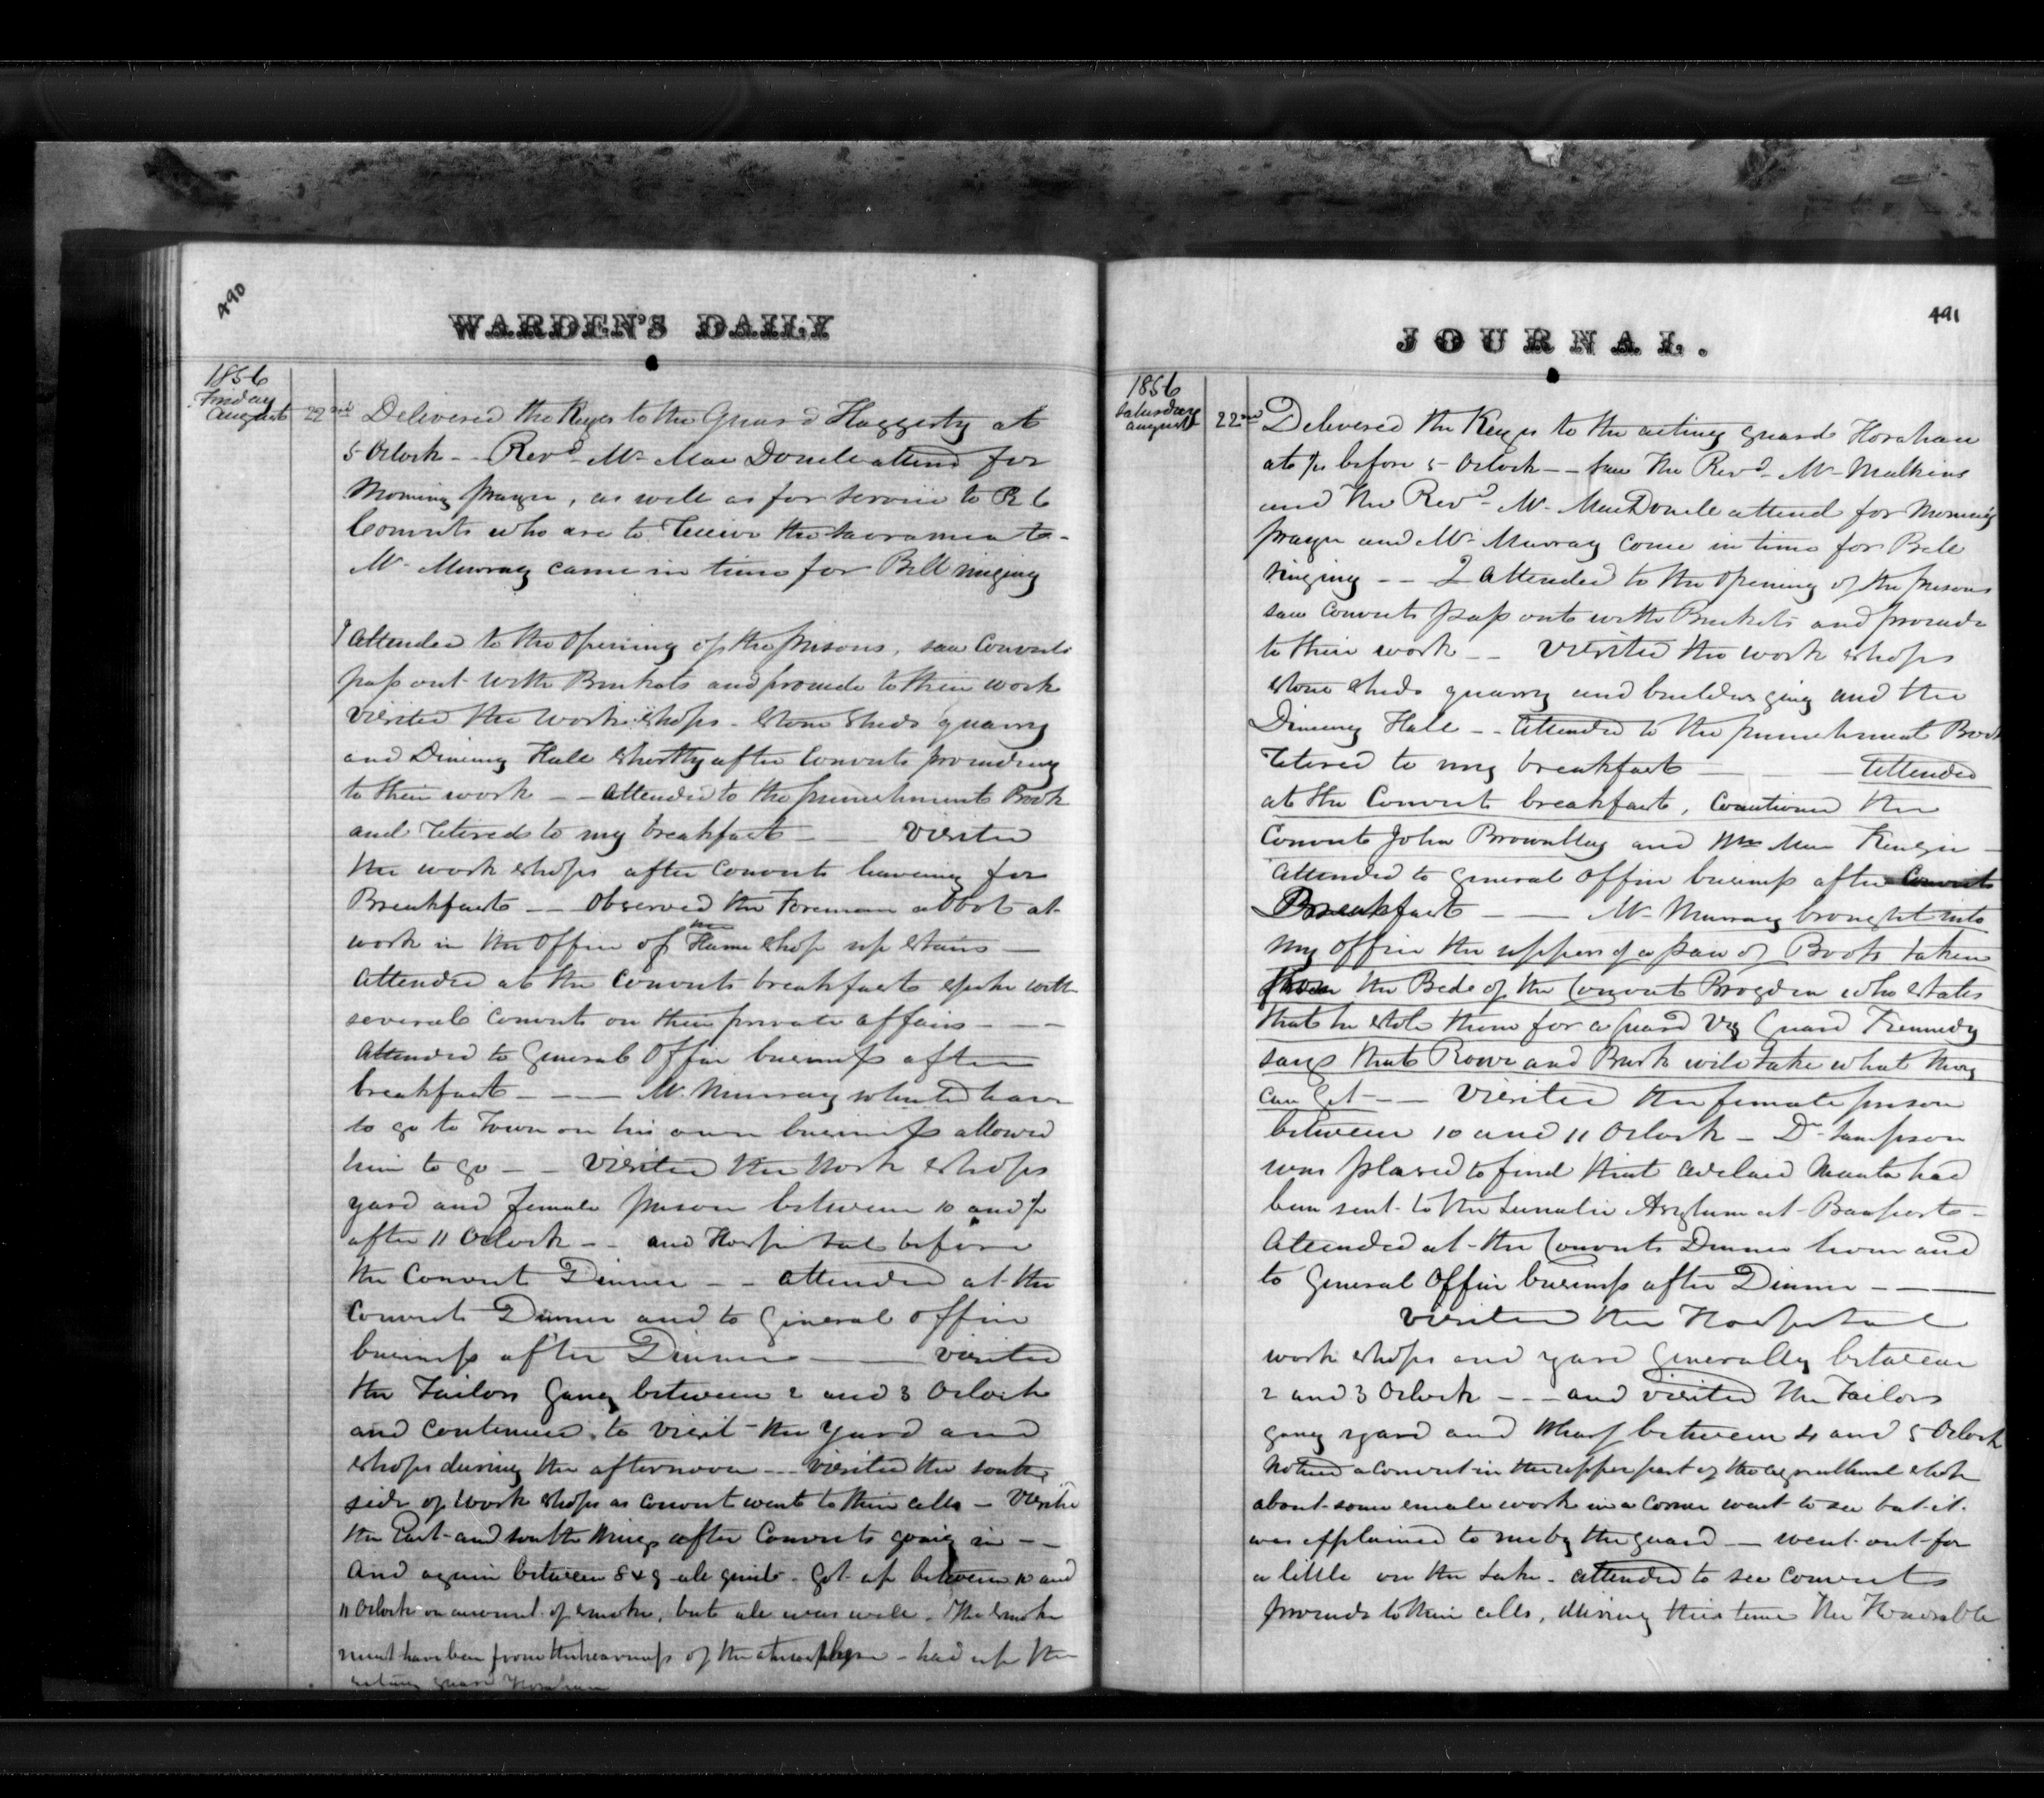 490
WARDEN'S DAILY
1856
Friday
August 22nd Delivered the Keys to the Guard Haggerty at
5 Oclock -- Revd Mr Mac Donell attend for
Morning prayer, as well as for service to R C
Convicts who are to receive the sacrament -
Mr Murray came in time for Bell ringing
I attended to the opening of the prisons, saw Convicts
pass out with Buckets and proceede to their work
visited the work shops - stone sheds quarry
and Dineing Hall shortly after Convicts proceeding
to their work -- attended to the punishment Book
and retired to my breakfast -- visited
the work shops after Convicts leaveing for
Breakfast -- observed the Foreman abbot at
work in the office of the Hame shop up stairs --
attended at the Convicts breakfast spoke with
several convicts on their private affairs ---
attended to General Office business after
breakfast ---- Mr Murray wanted leave
to go to Town on his own business allowed
him to go -- visited the work shops
yard and female prison between 10 and ½
after 11 Oclock -- and Hospital before
the Convict Dinner -- attended at the
Convict Dinner and to General office
business after Dinner -- visited
the Tailors Gang between 2 and 3 Oclock
and continued to visit the yard and
shops during the afternoon -- visited the south
side of work shops as convict went to their cells - visite
the East and south wings after Convicts going in --
and again between 8 & 9 all quiet - Got up between 10 and
11 Oclock on account of smoke, but all was well. The smoke
must have been from the heaviness of the atmosphere - had up the
acting guard Horahan
491
JOURNAL.
1856
Saturday
August 22nd Delivered the Keys to the acting guard Horahan
at ¼ before 5 Oclock -- saw the Revd Mr Mulkins
and the Revd Mr MacDonell attend for morning
prayer and Mr Murray come in time for Bell
ringing -- I attended to the opening of the prisons
saw Convicts pass out with Buckets and proceede
to their work -- visited the work shops
stone sheds quarry and builders gang and the
Dineing Hall -- attended to the punishment Book
retired to my breakfast -- attended
at the Convict breakfast, Cautioned the
Convicts John Brownlley and Wm Mac Kenzie -
attended to General office business after Convict
Breakfast -- Mr Murray brought into
my office the uppers of a pair of Boots taken
from the Bed of the Convict Brogden who states
that he stole them for a Guard Viz Guard Kennedy
says that Rowe and Burk will take what they
can get -- visited the female prison
between 10 and 11 Oclock - Dr Sampson
was pleased to find that Adelaid Manta had
been sent to the Lunatic Asylum at Beauport -
Attended at the Convicts Dinner hour and
to General Office business after Dinner ---
visited the Hospital
work shops and yard Generally between
2 and 3 Oclock --- and visited the Tailors
gang yard and wharf between 4 and 5 Oclock
Noticed a convict in the upper part of the agricultural shop
about some small work in a corner went to see but it
was explained to me by the guard -- went out for
a little on the Lake - attended to see Convicts
proceede to their cells, during this time the Honorable